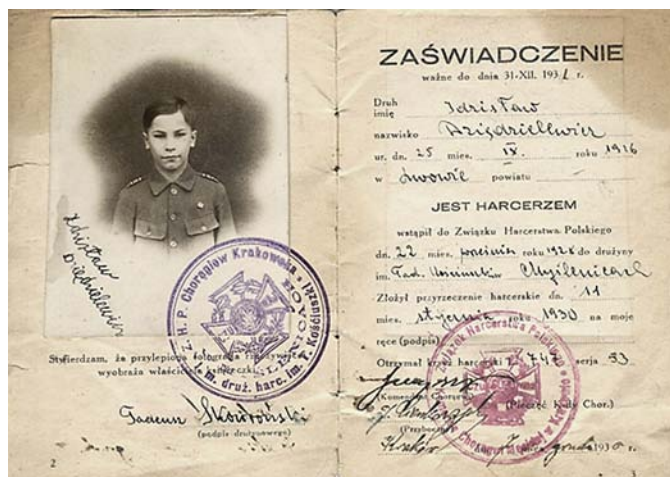 Zdzisław
Dziędzielewicz
Z.H.P. Chorągiew Krakowska
m. druż. harc. im. T. Kościuszki
Stwierdzam, że przylepiona fotografja rzeczywiście
wyobraża właściciela książeczki.
Tadeusz
(podpis drużynowego)
2
ZAŚWIADCZENIE
ważne do dnia 31-XII. 1931 r.
Druh
imię Zdzisław
nazwisko Dziędzielewicz
ur. dn. 25 mies. IX. roku 1916
w Lwowie powiatu
JEST HARCERZEM
wstąpił do Związku Harcerstwa Polskiego
dn. 22 mies. września roku 1928 do drużyny
im. Tad. Kościuszki w
Złożył przyrzeczenie harcerskie dn. 11
mies. stycznia roku 1930 na moje
ręce (podpis)
Otrzymał krzyż harcerski L. 747 serja 53
(Komendant Chorągwi)
(Pieczęć K-dy Chor.)
(Przyboczny)
Kraków 1930 r.
Związek Harcerstwa Polskiego
3